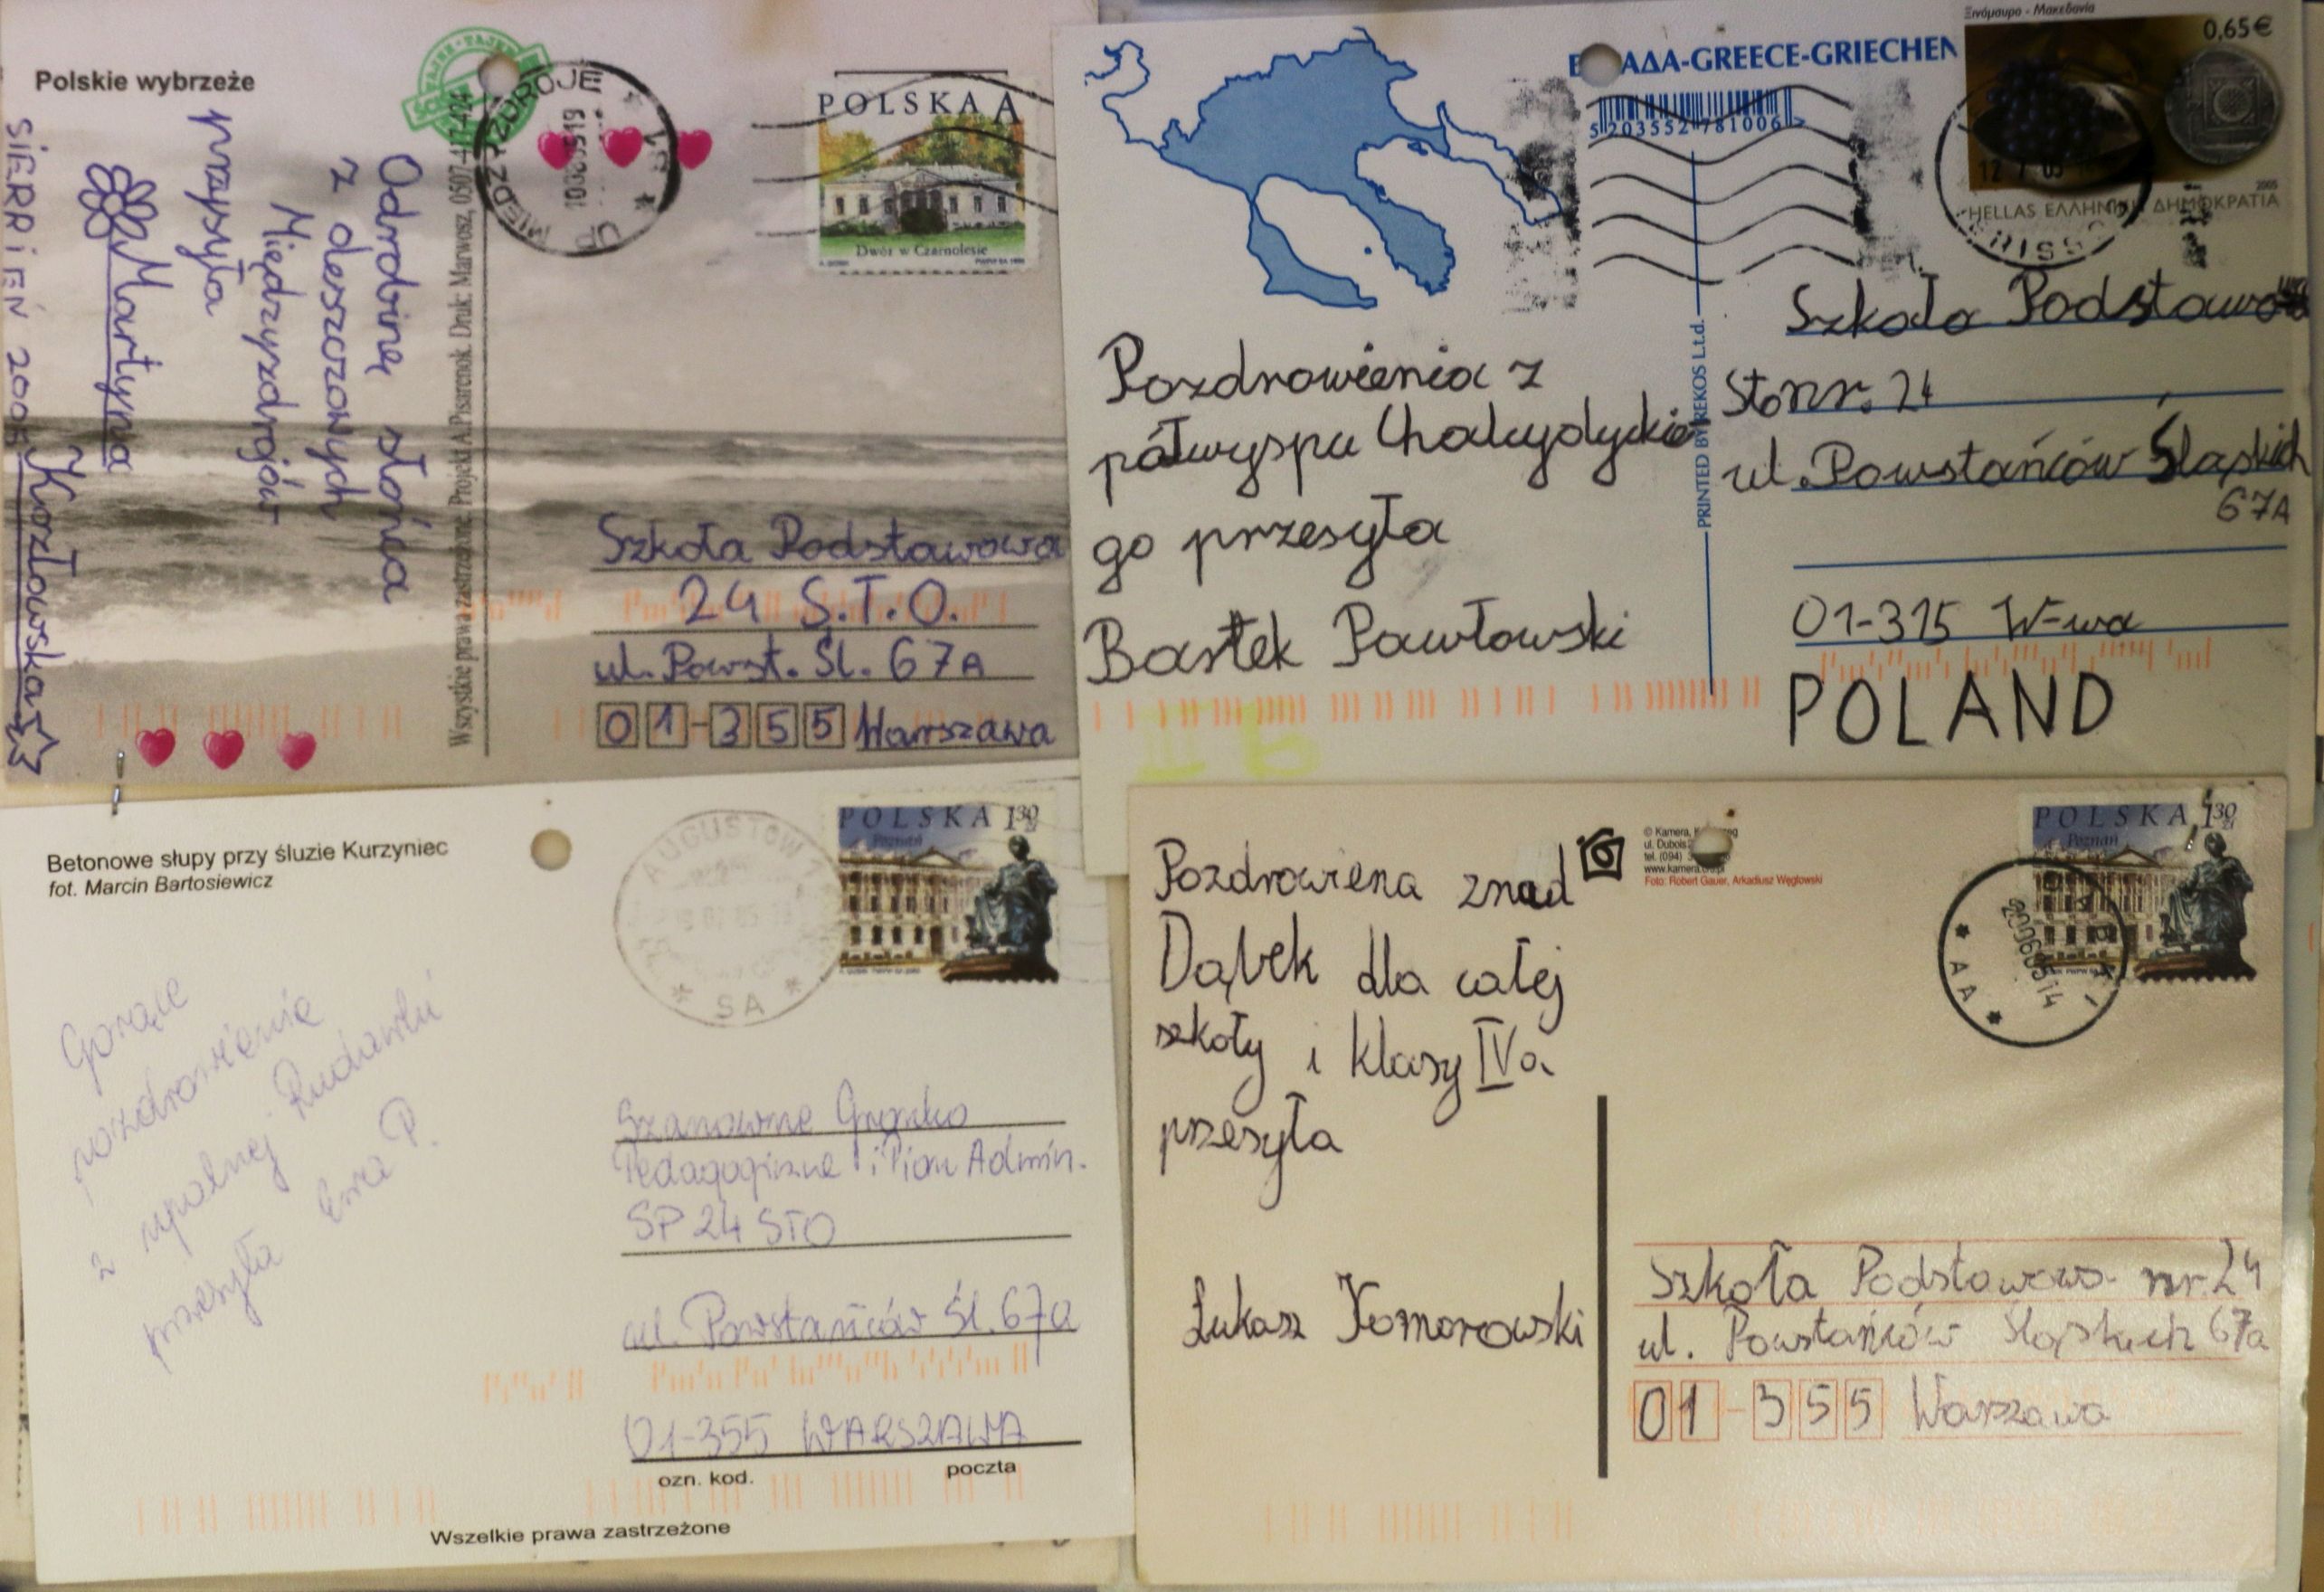 Polskie wybrzeże
Odrobinę słońca
z deszczowych
Międzyzdrojów
przesyła
Martyna
Kozłowska
SIERPIEŃ 2005
Wszystkie prawa zastrzeżone. Projekt A.Pisarenok. Druk: Marwosz, 0507-417-424
UP MIĘDZYZDROJE 1
POLSKA A
Dwór w Czarnolesie
Szkoła Podstawowa
24 S.T.O.
ul. Powst. Śl. 67A
01-355 Warszawa
ΑΔΑ-GREECE-GRIECHEN
5 203552 781006
Ξινόμαυρο - Μακεδονία
0,65€
2005
HELLAS ΕΛΛΗΝΙΚΗ ΔΗΜΟΚΡΑΤΙΑ
Pozdrowienia z
półwyspu Chalcydyckie
go przesyła
Bartek Pawłowski
PRINTED BY REKOS L.t.d.
Szkoła Podstawowa
Sto nr. 24
ul. Powstańców Śląskich
67A
01-315 W-wa
POLAND
Betonowe słupy przy śluzie Kurzyniec
fot. Marcin Bartosiewicz
AUGUSTÓW
SA
POLSKA 130 zł
Poznań
Gorące
pozdrowienia
z upalnej Rudawki
przesyła Ewa P.
Szanowne Grono
Pedagogiczne i Pion Admin.
SP 24 STO
ul. Powstańców Śl. 67a
01-355 WARSZAWA
ozn. kod. poczta
Wszelkie prawa zastrzeżone
Pozdrowiena znad
Dąbek dla całej
szkoły i klasy IVa
przesyła
Łukasz Komorowski
© Kamera,
ul. Dubois
tel. (094)
www.kamera
Foto: Robert Gauer, Arkadiusz Węglowski
POLSKA 130 zł
Poznań
AA
Szkoła Podstawowa nr. 24
ul. Powstańców Śląskich 67a
01-355 Warszawa